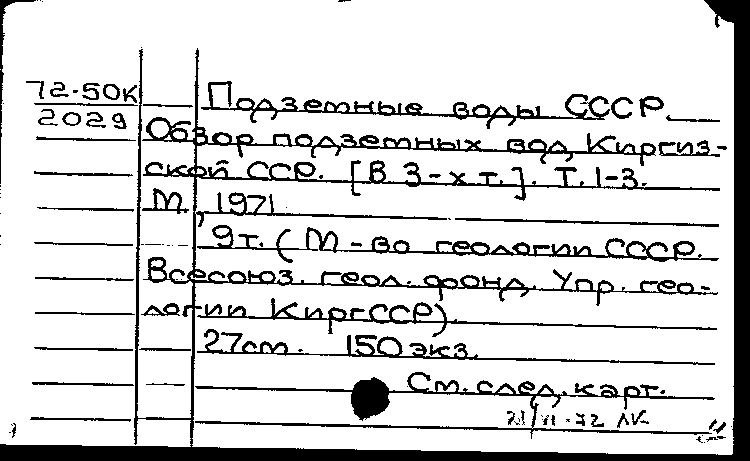 72-50К Подземные воды СССР.
2029 Обзор подземных вод Киргиз-
ской ССР. [В 3-х т.]. Т. 1-3.
М., 1971
9т. (М-во геологии СССР.
Всесоюз. геол. фонд. Упр. гео-
логии КиргССР).
27см. 150 экз.
См. след. карт.
21/VI-72